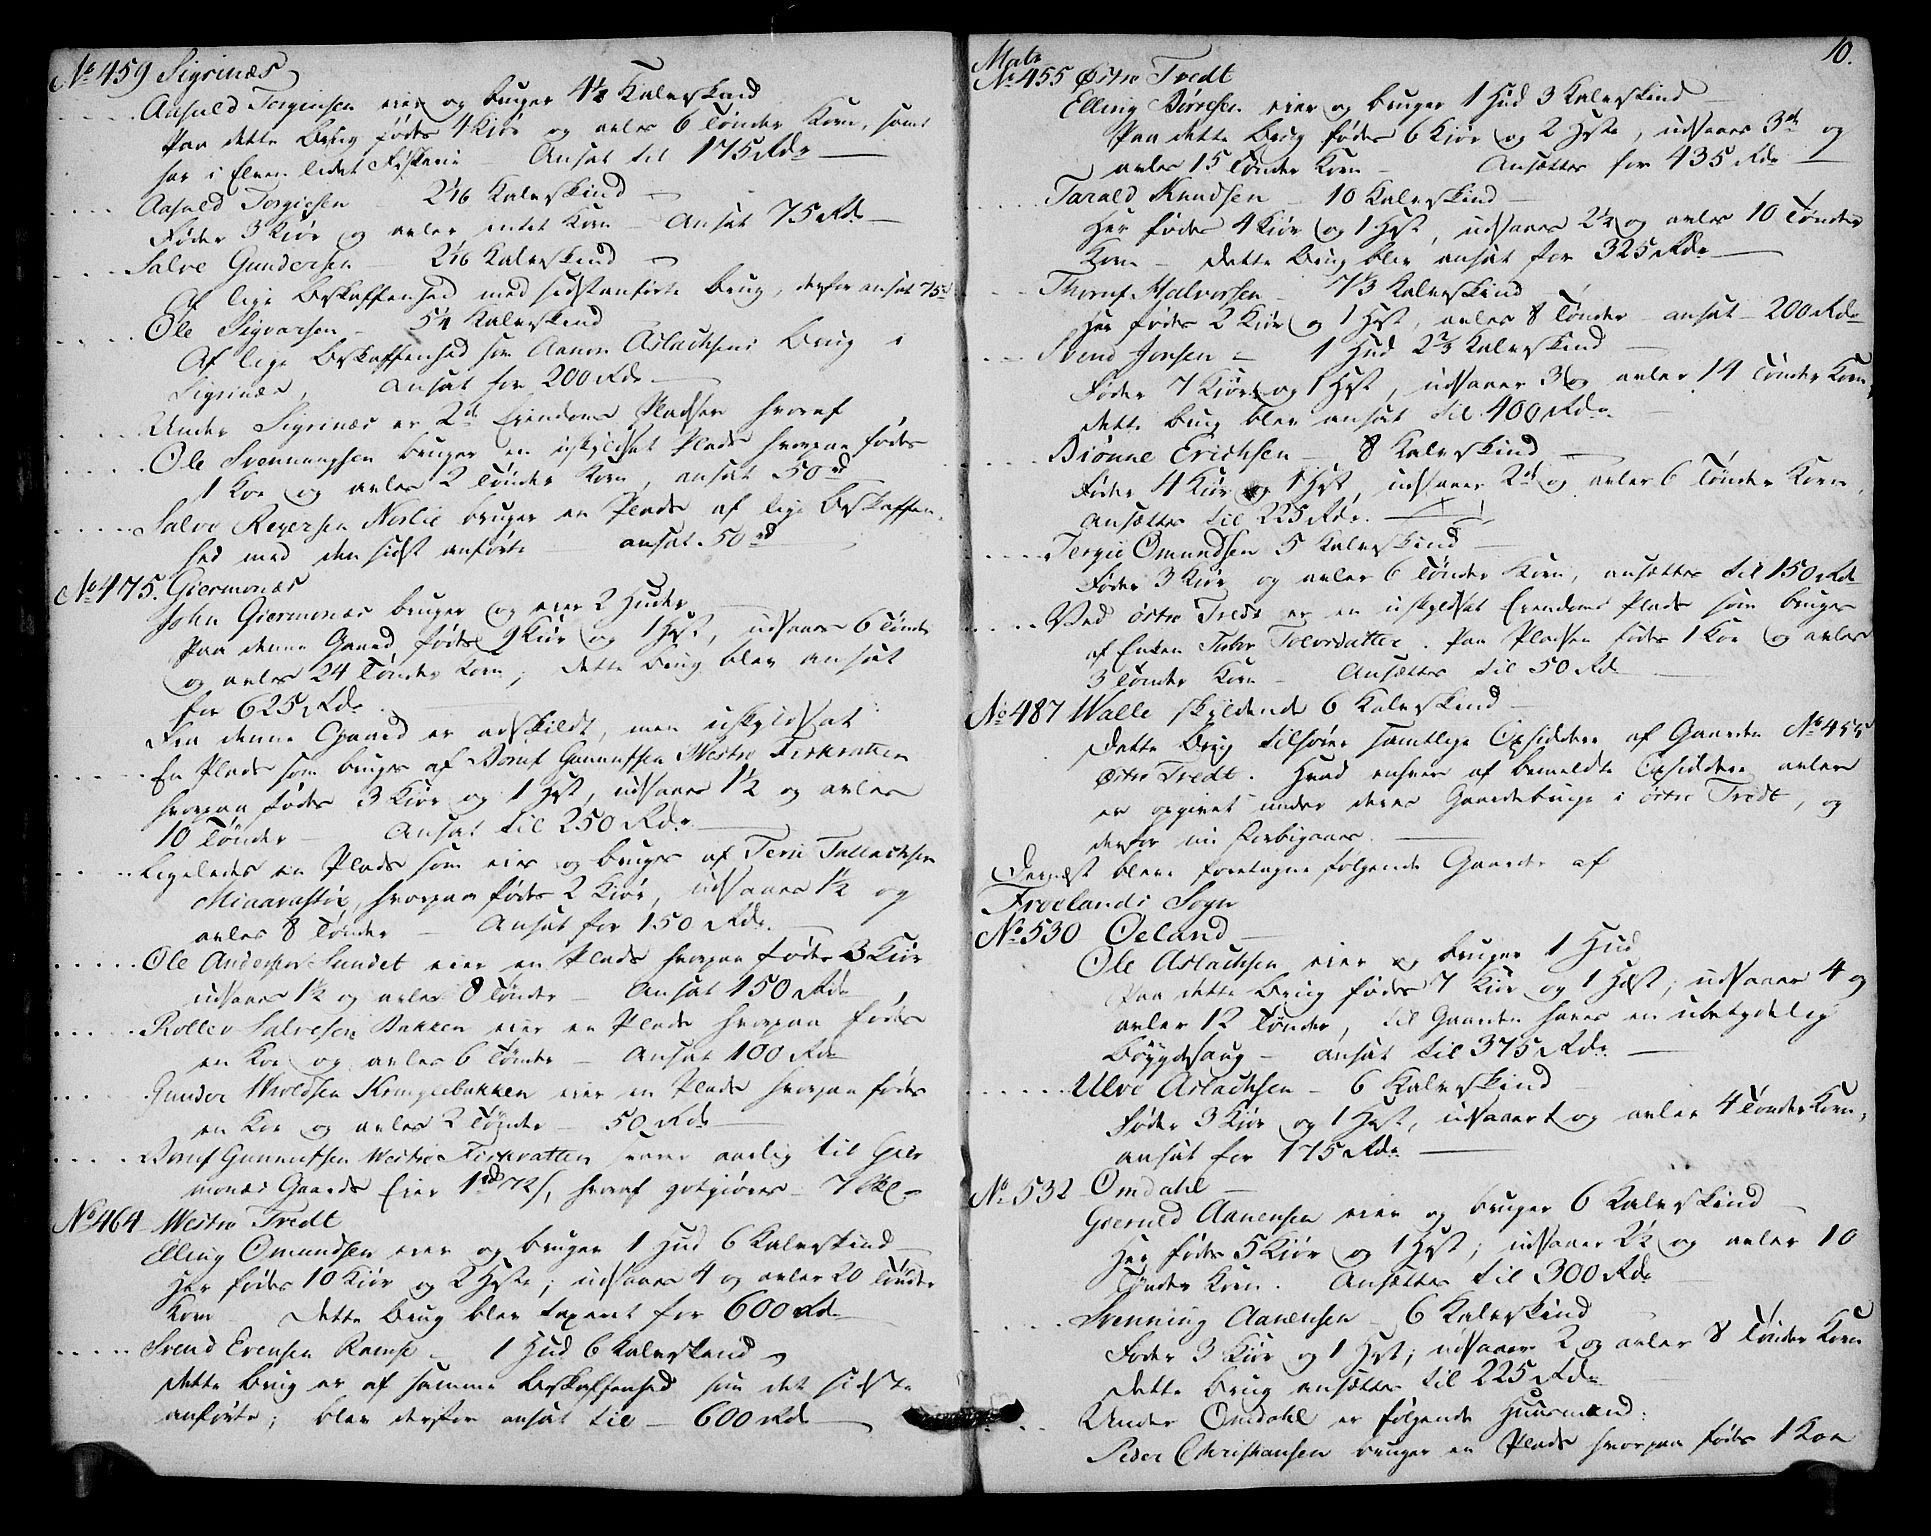 No 459 Sigrinæs
Aasuld Torginsen eier og bruger 4½ Kalvskind
Paa dette Brug fødes 4 Kiør og avles 6 Tønder Korn, samt
har i Elven lidet Fiskerie Ansat til 175 Rdr
Aasuld Tergiesen 2 1/16 Kalvskind
Føder 3 Kiør og avler intet Korn – Ansat 75 Rd
Salve Gundersen – 2 1/16 Kalvskind
Af lige Beskaffenhed med sidstanførte Brug, derfor ansat 75 rd
Ole Sigvarsen – 5¼ Kalvskind
Af lige Beskaffenhed som Aanon Aslachsens Brug i
Sigrinæs, ansat for 200 Rdr
Under Sigrinæs er 2de Eiendoms Pladser hvoraf
Ole Svennungsen bruger en uskyldsat Plads hvorpaa fødes
1 Koe og avles 2 Tønder Korn, ansat 50 rd
Salve Reyersen Neslie bruger en Plads af lige Beskaffen
hed med den sidst anførte – ansat 50 rd
No 475. Giermonæs
John Giermonæs bruger og eier 2 Huder
Paa denne Gaard fødes 9 Kiør og 1 Hest, udsaaes 6 Tønde
og avles 24 Tønder Korn; dette Brug blev ansat
for 625 Rdr.
Fra denne Gaard er adskildt, men uskyldsat
En Plads som bruges af Boruf Gunnufsen Westre Tirkvatten
hvorpaa fødes 3 Kiør og 1 Hest, udsaaes 1½ og avles
10 Tønder – Ansat til 250 Rdr.
Ligeledes en Plads som eies og bruges af Teri Tallachsen
hvorpaa fødes 2 Kiør, udsaaes 1½ og
avles 8 Tønder – Ansat for 150 Rdr.
Ole Andersen Sundet eier en Plads hvorpaa fødes 3 Kiør
udsaaes 1½ og avles 8 Tønder – Ansat 150 Rdr
Rollev Salvesen Bakken eier en Plads hvorpaa fødes
en Koe og avles 6 Tønder – Ansat 100 Rdr
Gunder Wroldsen Kringebakken eier en Plads hvorpaa fødes
en Koe og avles 2 Tønder – 50 Rdr
Boruf Gunnufsen Westre Tirkvatten svarer aarlig til Gier
monæs Gaards Eier 1 rd 72 s, hvoraf godtgiøres – 7 Rd
No 464 Westre Tredt
Elling Omundsen eier og bruger 1 Hud 6 Kalvskind
Her fødes 10 Kiør og 2 Heste; udsaaes 4 og avles 20 Tønder
Korn – Dette Brug blev taxeret for 600 Rd
Svend Evensen Ramse – 1 Hud 6 Kalvskind
Dette Brug er af samme Beskaffenhed som det sidste
anførte; blev derfor ansat til – 600 Rd
10.
Matr
No 455 Østre Tredt
Elling Børresen eier og bruger 1 Hud 3 Kalvskind
Paa dette Brug fødes 6 Kiør og 2 Heste, udsaaes 3de og
avles 15 Tønder Korn – Ansættes for 435 Rdr
Tarald Knudsen – 10 Kalvskind
Her fødes 4 Kiør og 1 Hest, udsaaes 2½ og avles 10 Tønder
Korn – dette Brug blev ansat for 325 Rdr
Halvorsen – 7⅓ Kalvskind
Her fødes 2 Kiør og 1 Hest, avles 8 Tønder – ansat – 200 Rdr
Svend Jonsen – 1 Hud 2⅔ Kalvskind
Føder 7 Kiør og 1 Hest, udsaaer 3 og avler 14 Tønder Korn,
dette Brug blev ansat til 400 Rdr.
Biønne Erichsen – 8 Kalvskind
Føder 4 Kiør og 1 Hest, udsaaer 2de og avler 6 Tønder Korn,
ansættes til 225 Rdr.
Tergie Omundsen 5 Kalvskind
Føder 3 Kiør og avler 6 Tønder Korn, ansættes til 150 Rd
Ved Østre Tredt er en uskyldsat Eiendoms Plads som bruges
af Enken Tolvsdatter. Paa Pladsen fødes 1 Koe og avles
3 Tønder Korn – Ansættes til 50 Rd
No 487 Walle skyldende 6 Kalvskind
Dette Brug tilhører samtlige Opsiddere af Gaarden No 455
Østre Tredt. Hvad enhver af bemeldte Opsiddere avler
er opgivet under deres Gaardebruge i Østre Tredt, og
derfor nu forbigaaes.
Dernæst bleve foretagne følgende Gaarde af
Froelands Sogn
No 530 Øeland
Ole Aslachsen eier og bruger 1 Hud
Paa dette Brug fødes 7 Kiør og 1 Hest; udsaaes 4 og
avles 12 Tønder, til Gaarden haves en ubetydelig
Bøygdesaug – ansat til 375 Rdr.
Ulve Aslachsen – 6 Kalvskind
Føder 3 Kiør og 1 Hest, udsaaer 1 og avler 4 Tønder Korn,
ansat for 175 Rdr
No 532 Omdahl
Gieruld Aanensen eier og bruger 6 Kalvskind
Her fødes 5 Kiør og 1 Hest; udsaaes 2½ og avles 10
Tønder Korn. Ansættes til 300 Rdr
Svenning Aanensen – 6 Kalvskind
Føder 3 Kiør og 1 Hest; udsaaer 2 og avler 8 Tønder Korn
dette Brug ansættes til 225 Rdr
Under Omdahl er følgende Huusmænd:
Peder Christiansen bruger en Plads hvorpaa fødes 1 Koe